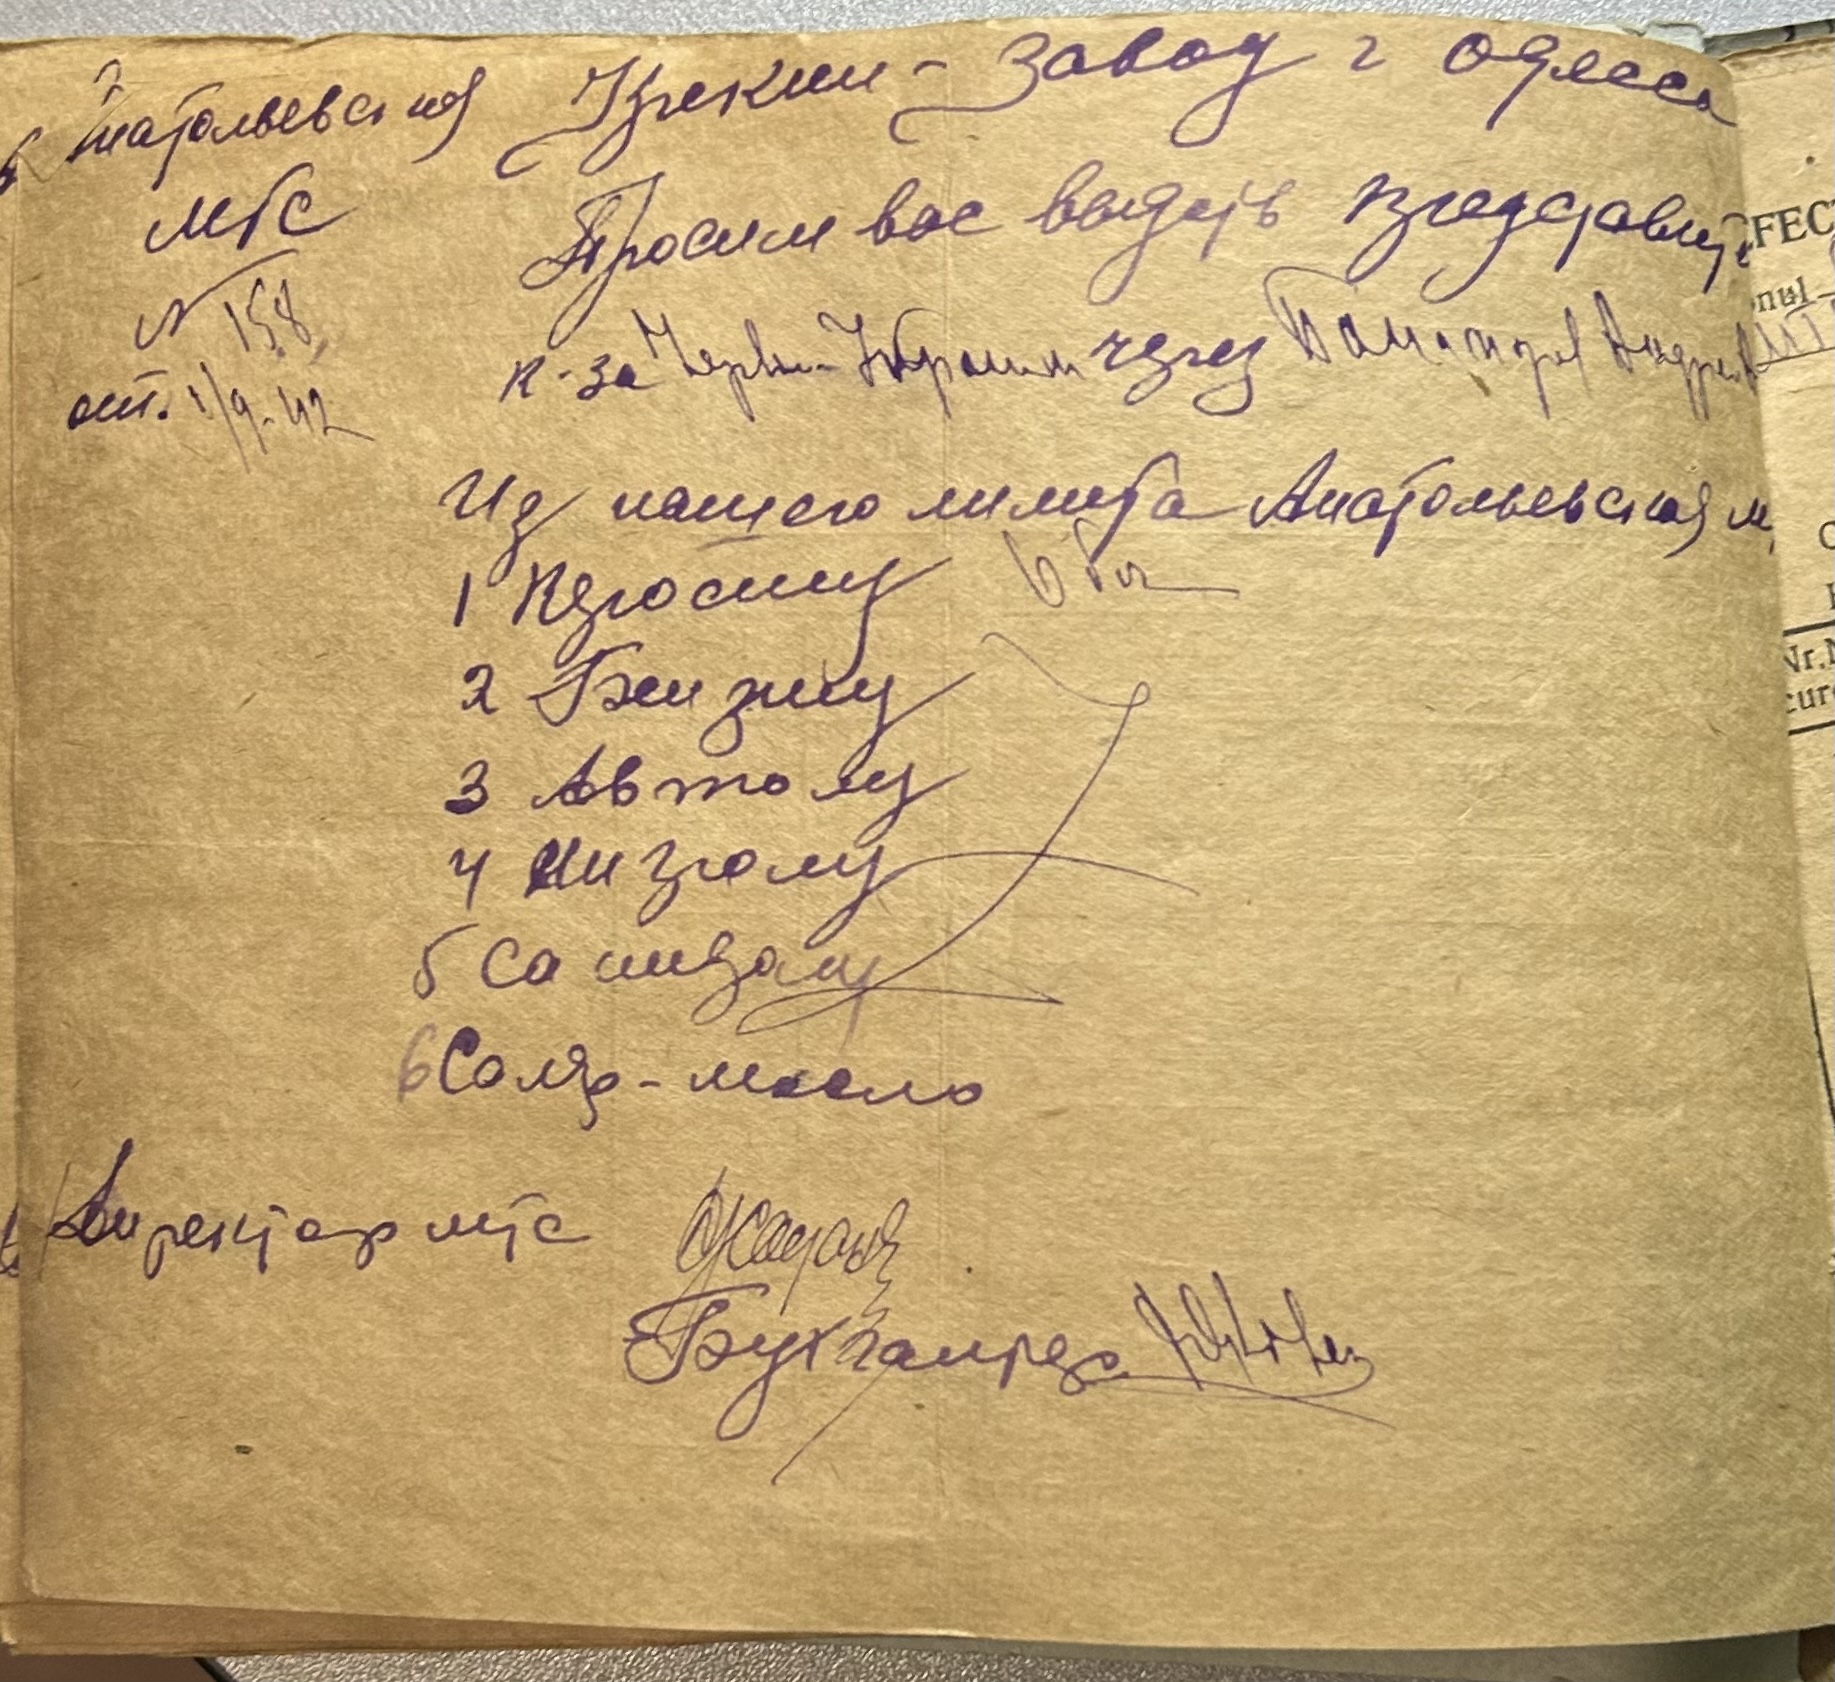 Анатольевская
МТС
N 158
от. 1/9-42
Крекин-завод г Одесса
Просим вас выдать представит
к-за Червон-Украины через Андре
Из нашего лимита Анатольевская м
1 Керосину
2 Бензину
3 Автолу
4 Нигролу
5 Солидолу
6 Соляр-масло
Директор мтс
Бухгалтер
EFECT
Nr.